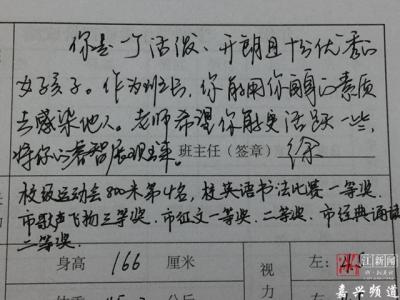 你是一个活泼、开朗且十分优秀的
女孩子。作为班长，你能用你的素质
去感染他人。老师希望你能更活跃一些，
将你的睿智展现出来。班主任（签章）徐
校级运动会800米第4名，校英语书法比赛一等奖，
市歌声飞扬三等奖，市征文一等奖、二等奖，市经典诵读
二等奖。
身高 166 厘米 视力 左：
江新闻
嘉兴频道